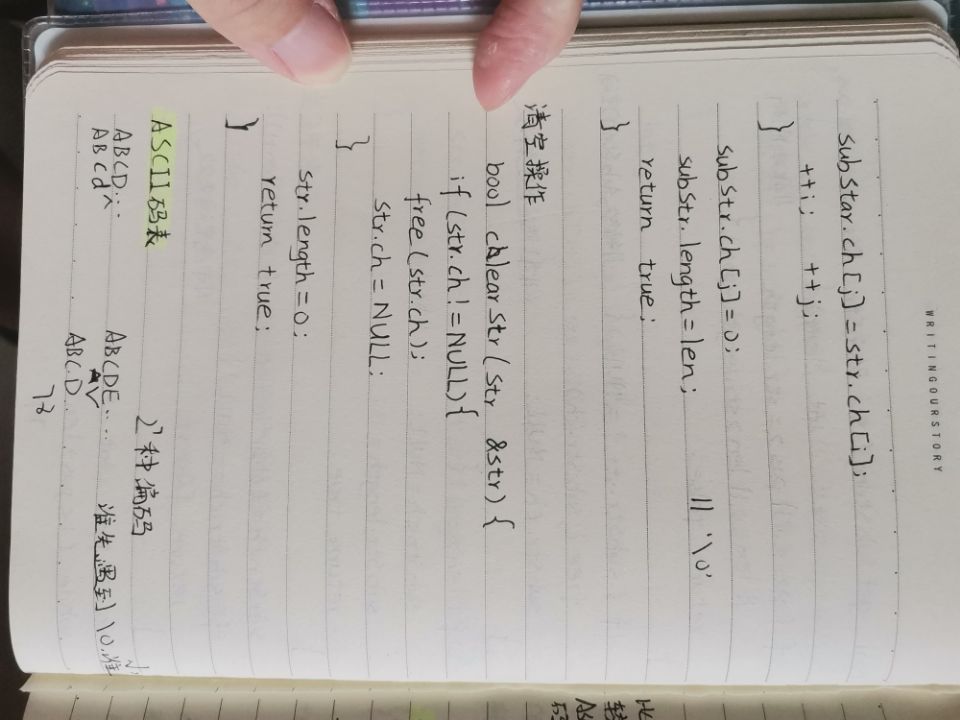 WRITINGOURSTORY
substar.ch[j]=str.ch[i];
++i; ++j;
}
substr.ch[j]=0;
substr.length=len; || '\0'
return true;
}
清空操作
bool clearstr(str &str){
if(str.ch!=NULL){
free(str.ch);
str.ch=NULL;
}
str.length=0;
return true;
}
ASCII码表
2种偏码
ABCD... ABCDE.... 谁先遇到\0.谁小
ABCd ABCD
比
转
AS
码